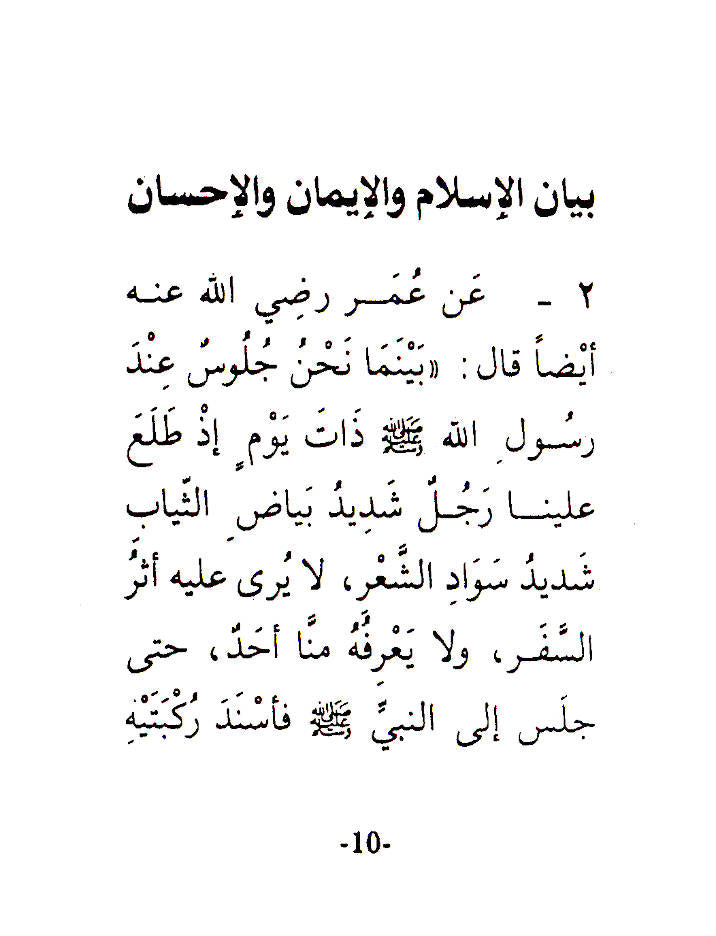 بيان الإسلام والإيمان والإحسان
٢ - عَن عُمَـر رضِي الله عنـه
أيْضاً قال: «بَيْنَمَا نَحْنُ جُلُوسٌ عِنْدَ
رسُـولِ الله ﷺ ذَاتَ يَوْمٍ إذْ طَلَعَ
علينـا رَجُـلٌ شَدِيدُ بَياضِ الثّيابِ
شَديدُ سَوَادِ الشَّعْر، لا يُرى عليه أثرُ
السَّفَـر، ولا يَعْرِفُهُ منَّا أحَدٌ، حتى
جلَس إلى النبيِّ ﷺ فأسْنَدَ رُكْبَتَيْهِ
-10-